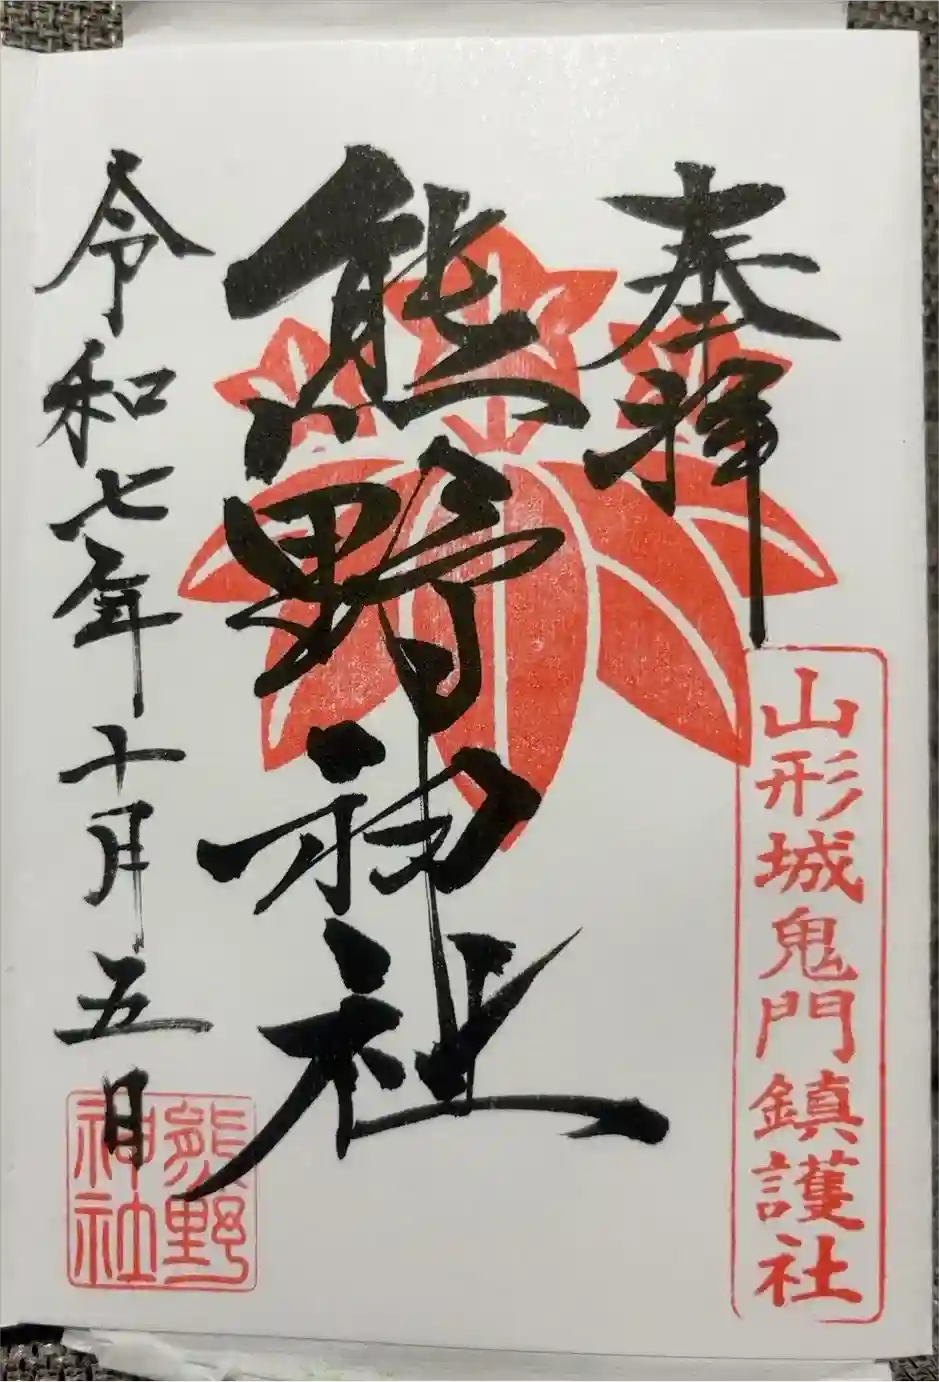 奉拝
山形城鬼門鎮護社
熊野神社
令和七年十月五日
熊野
神社